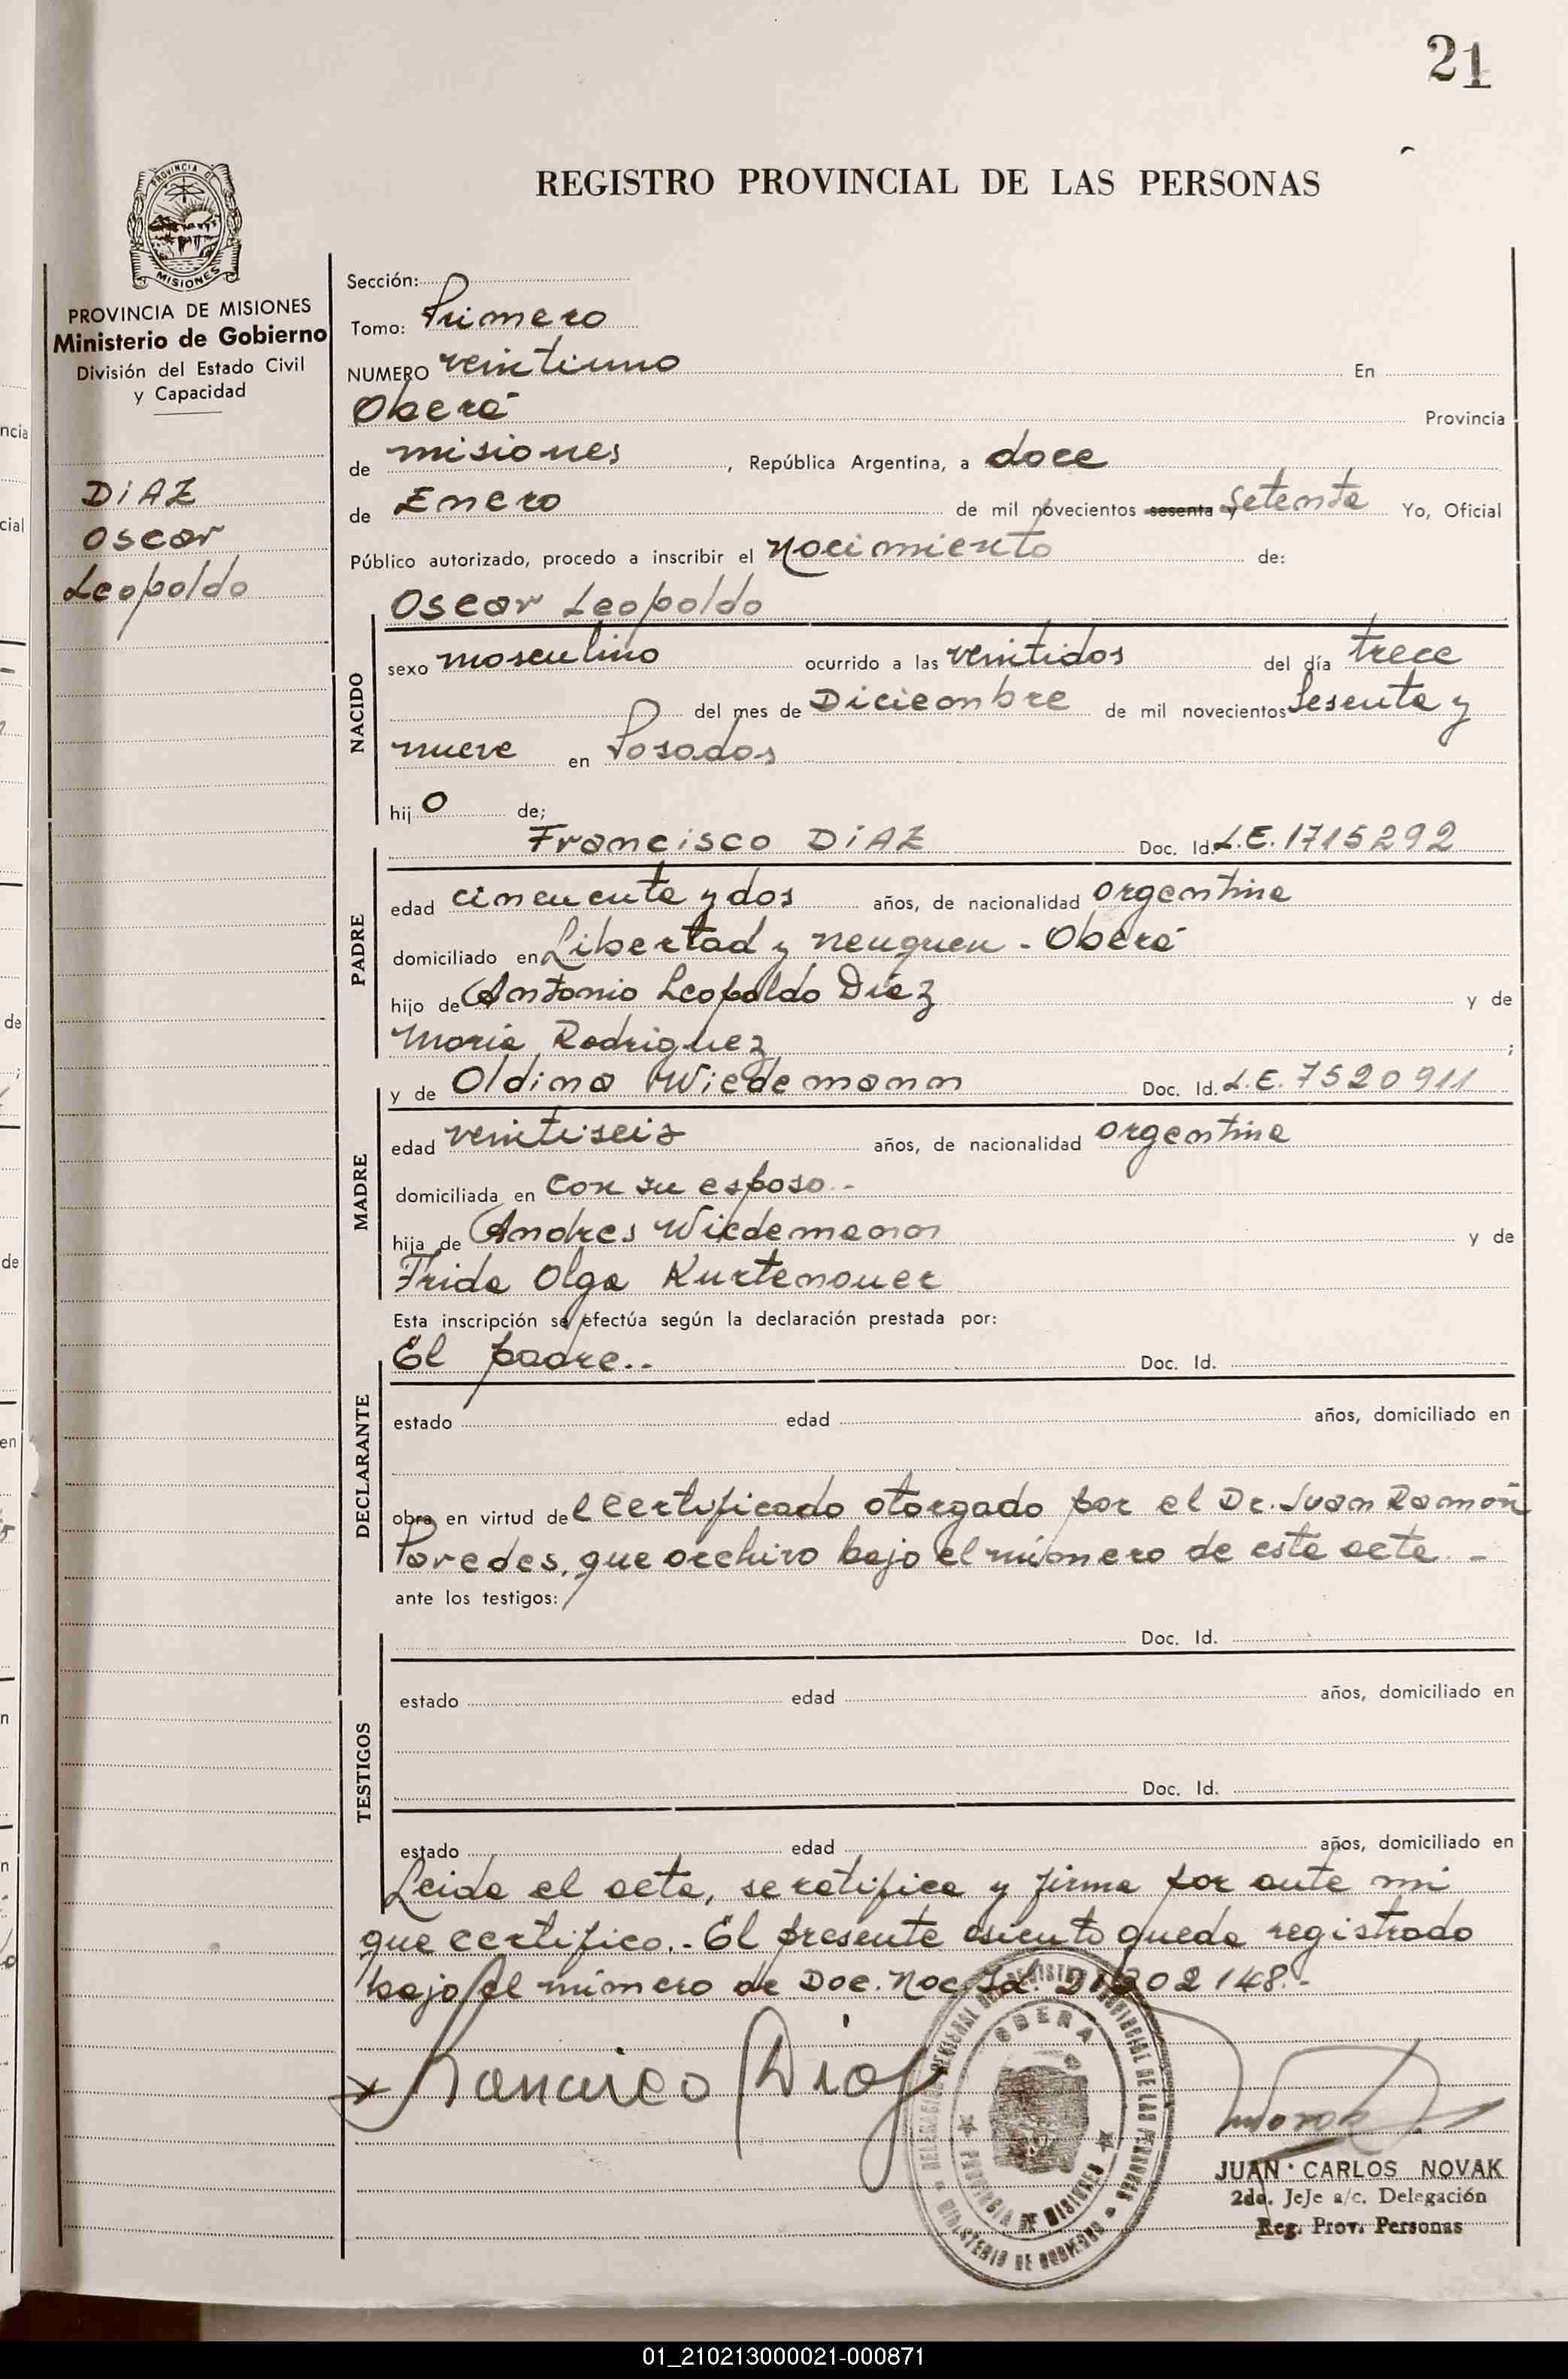 21
REGISTRO PROVINCIAL DE LAS PERSONAS
PROVINCIA DE MISIONES
PROVINCIA DE MISIONES
Ministerio de Gobierno
División del Estado Civil
y Capacidad
DiAZ
Oscar
Leopoldo
Sección:
Tomo: Primero
NUMERO veintiuno En
Oberá Provincia
de misiones, República Argentina, a doce
de Enero de mil novecientos sesenta y Setenta Yo, Oficial
Público autorizado, procedo a inscribir el Nacimiento de:
Oscar Leopoldo
NACIDO
sexo masculino ocurrido a las veintidos del día trece
del mes de Diciembre de mil novecientos Sesenta y
nueve en Posadas
hijo de;
Francisco DiAZ Doc. Id. L.E. 1715292
PADRE
edad cincuenta y dos años, de nacionalidad argentina
domiciliado en Libertad y Neuquen - Oberá
hijo de Antonio Leopoldo Diaz y de
Maria Rodriguez ;
y de Oldina Wiedemann Doc. Id. L.E. 7520911
MADRE
edad veintiseis años, de nacionalidad argentina
domiciliada en con su esposo.-
hija de Andres Wiedemann y de
Frida Olga Kurtenauer
Esta inscripción se efectúa según la declaración prestada por:
El padre.. Doc. Id.
DECLARANTE
estado edad años, domiciliado en
obra en virtud del certificado otorgado por el Dr. Juan Ramón
Paredes, que archivo bajo el número de este acta.-
ante los testigos:
Doc. Id.
TESTIGOS
estado edad años, domiciliado en
Doc. Id.
estado edad años, domiciliado en
Leida el acta, se ratifica y firma por ante mi
que certifico.- El presente asiento queda registrado
bajo el número de Doc. Nac. Id.
Francisco Diaz
DELEGACION REGIONAL DEL REGISTRO PROVINCIAL DE LAS PERSONAS
MINISTERIO DE GOBIERNO
OBERA
PROVINCIA DE MISIONES
JUAN CARLOS NOVAK
2do. JeJe a/c. Delegación
Reg. Prov. Personas
01_210213000021-000871